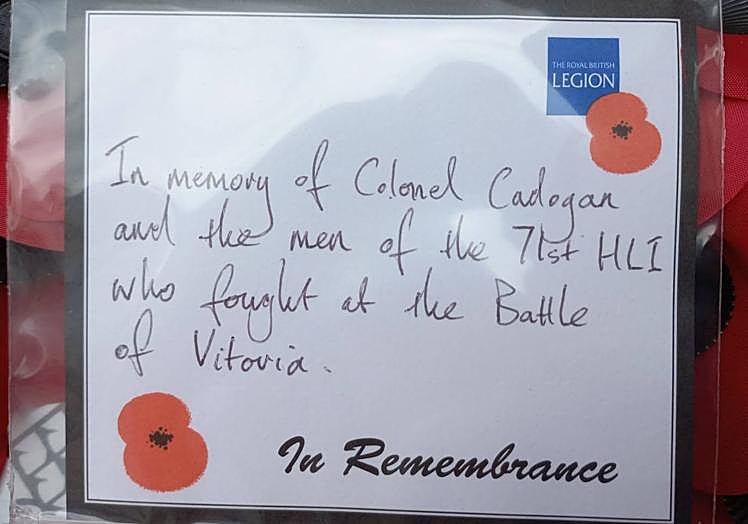 THE ROYAL BRITISH
LEGION
In memory of Colonel Cadogan
and the men of the 71st HLI
who fought at the Battle
of Vitoria.
In Remembrance